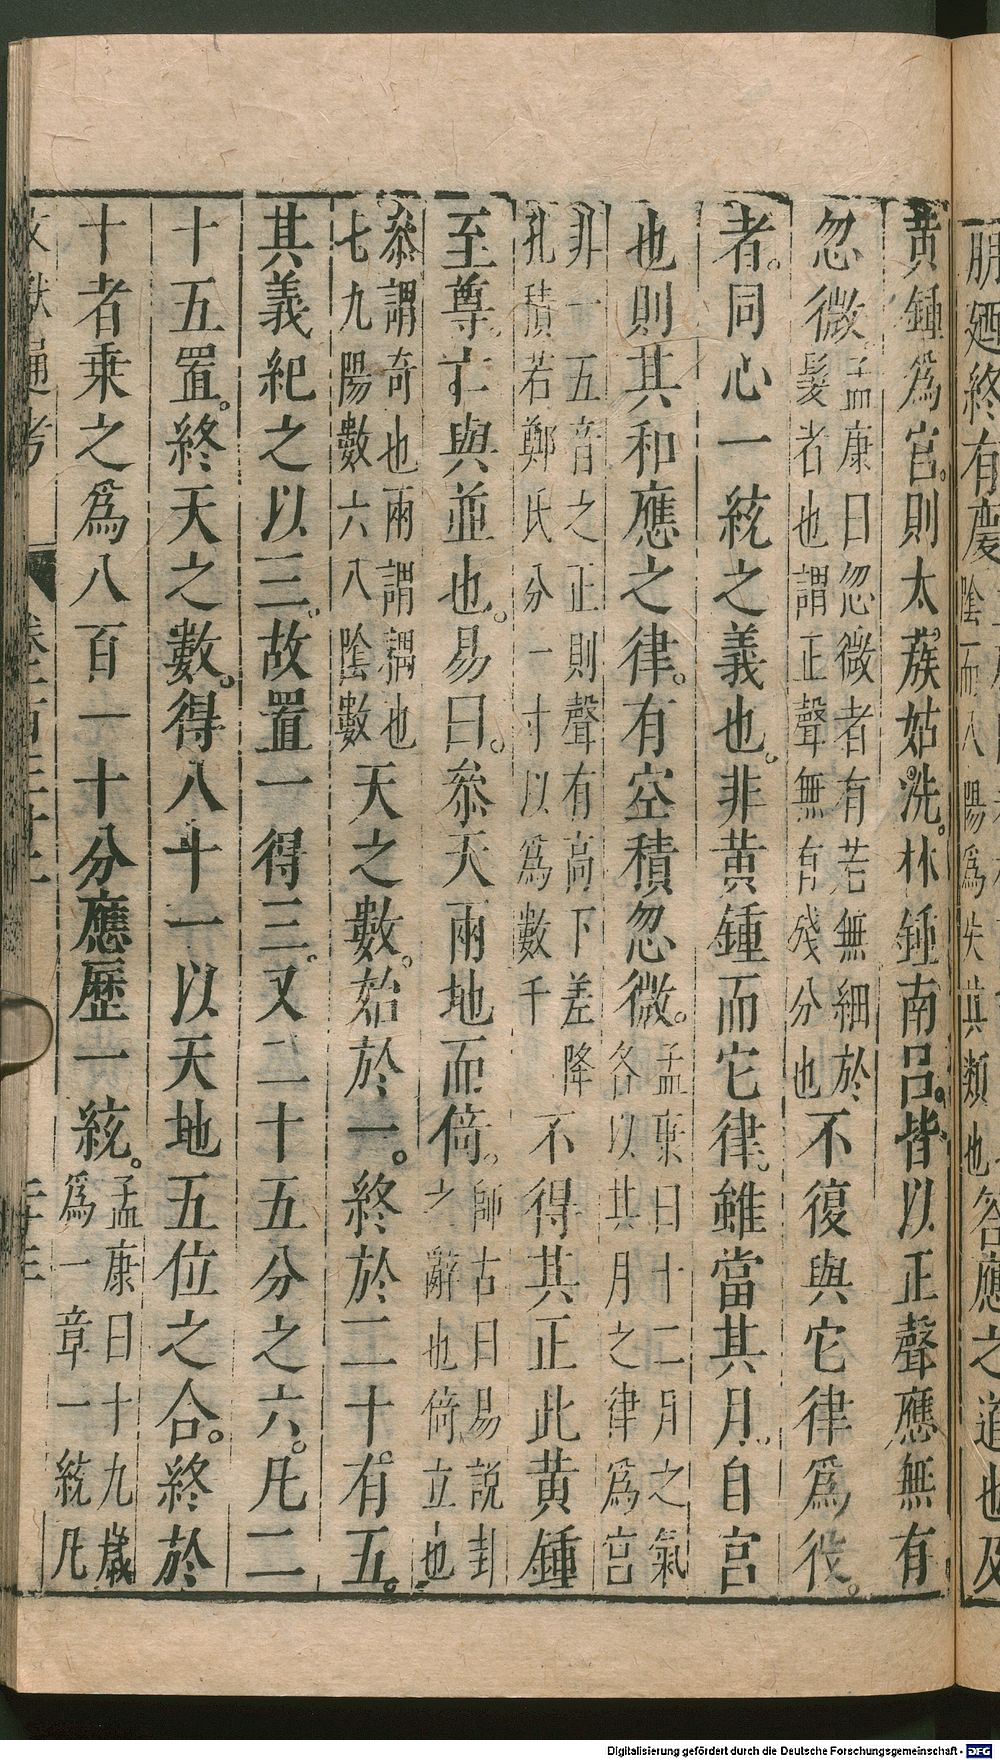 朋廼終有慶 陰而入陽爲失其類也 答應之道也及
黄鍾爲宫。則太蔟姑洗。林鍾南吕。皆以正聲應無有
忽微。孟康曰忽微者有若無細於
髮者也謂正聲無有殘分也 不復與它律爲役。
者。同心一統之義也。非黄鍾而它律。雖當其月。自宫
也則其和應之律。有空積忽微。孟康曰十二月之氣
各以其月之律爲宫
非一五音之正則聲有高下差降
孔積若鄭氏分一寸以爲數千 不得其正此黄鍾
至尊。亡與並也。易曰。叅天兩地而倚。師古曰易說卦
之辭也倚立也
叅謂奇也兩謂耦也
七九陽數六八陰數 天之數。始於一。終於二十有五。
其義紀之以三。故置一得三。又二十五分之六。凡二
十五置。終天之數。得八十一以天地五位之合。終於
十者乗之爲八百一十分應歷一統。孟康曰十九歲
爲一章一統凡
文獻通考
Digitalisierung gefördert durch die Deutsche Forschungsgemeinschaft - DFG